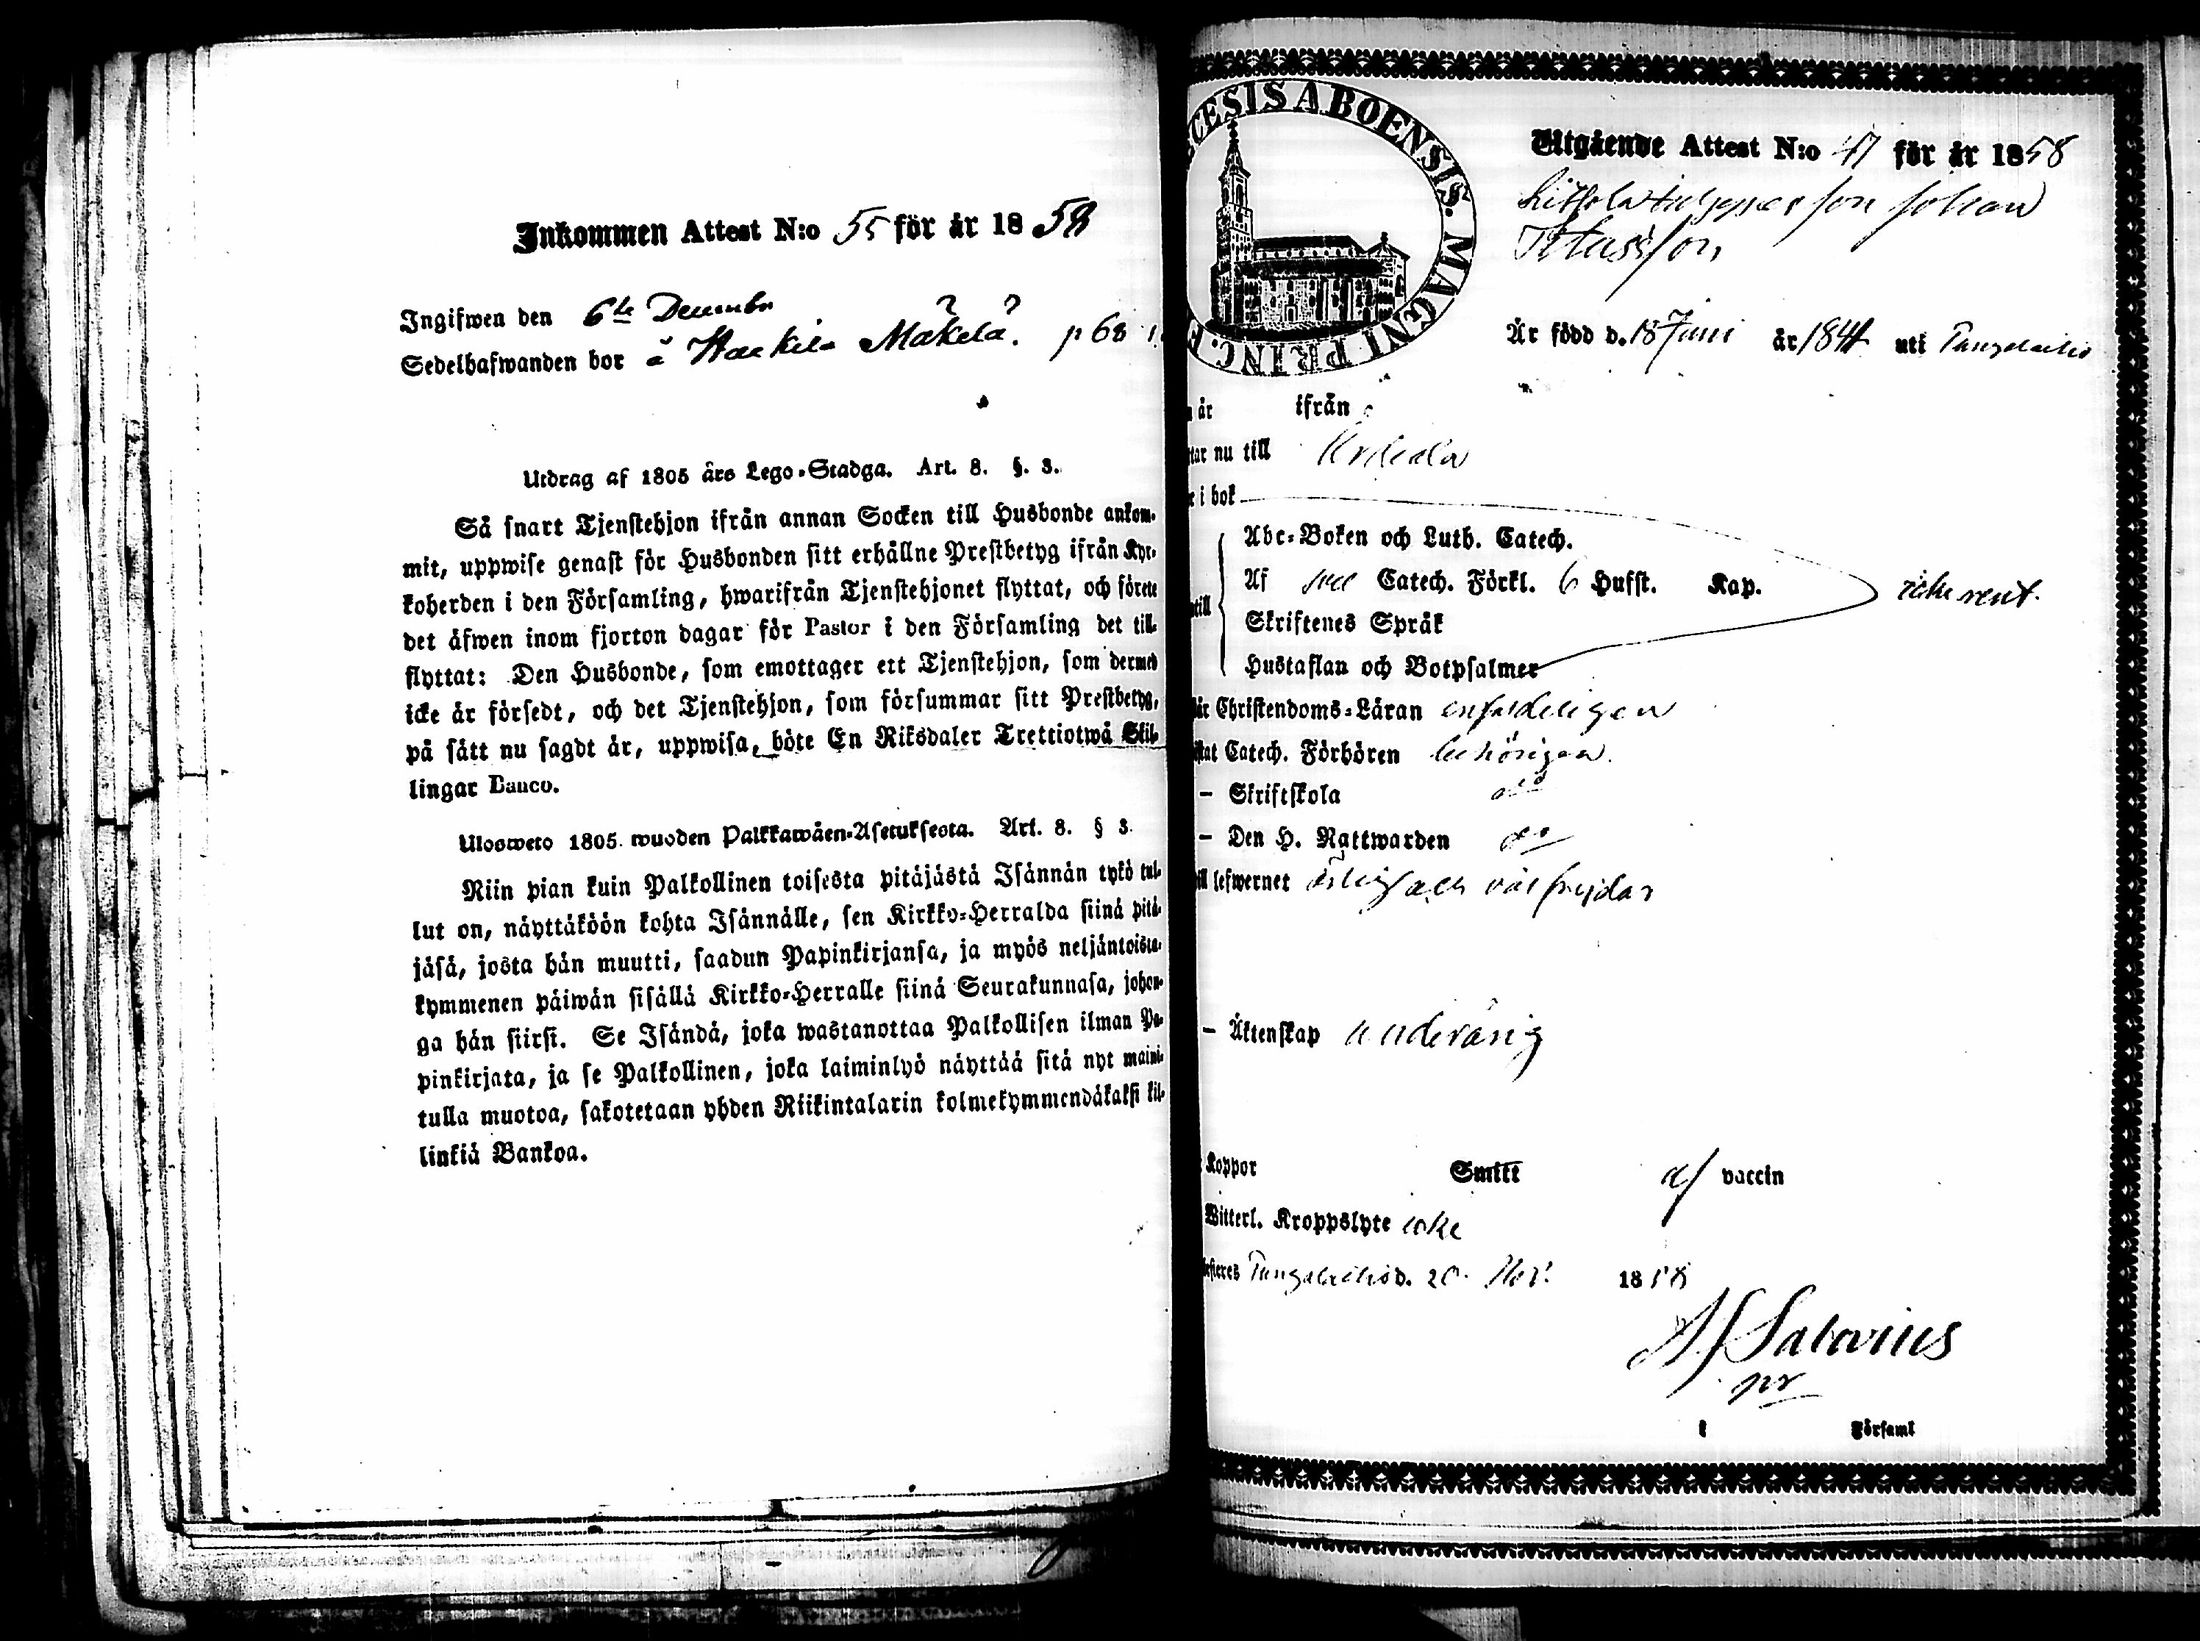 Inkommen Attest N:o 55 för år 1858
Ingifwen den 6te Decembr
Sedelhafwanden bor å Mäkelä? p 68
Utdrag af 1805 års Lego-Stadga. Art. 8. §. 3.
Så snart Tjenstehjon ifrån annan Socken till Husbonde ankom-
mit, uppwise genast för Husbonden sitt erhållne Prestbetyg ifrån Kyr-
koherden i den Församling, hwarifrån Tjenstehjonet flyttat, och förete
det äfwen inom fjorton dagar för Pastor i den Församling det till-
flyttat: Den Husbonde, som emottager ett Tjenstehjon, som dermed
icke är försedt, och det Tjenstehjon, som försummar sitt Prestbetyg,
på sätt nu sagdt är, uppwisa, böte En Riksdaler Trettiotwå Skil-
lingar Banco.
Ulosweto 1805 wuoden Palkkawäen-Asetuksesta. Art. 8. § 3.
Niin pian kuin Palkollinen toisesta pitäjästä Isännän tykö tul-
lut on, näyttäköön kohta Isännälle, sen Kirkko-Herralda siinä pitä-
jäsä, josta hän muutti, saadun Papinkirjansa, ja myös neljäntoista-
kymmenen päiwän sisällä Kirkko-Herralle siinä Seurakunnasa, johon-
ga hän siirsi. Se Isändä, joka wastanottaa Palkollisen ilman Pa-
pinkirjata, ja se Palkollinen, joka laiminlyö näyttää sitä nyt maini-
tulla muotoa, sakotetaan yhden Riikintalarin kolmekymmendäkaksi kil-
linkiä Bankoa.
CESIS ABOENSIS. MAGNI PRINC. F
Utgående Attest N:o 47 för år 1858
son Johan
Är född d. 18 Juni år 1844 uti
år ifrån
tar nu till
i bok
Abc-Boken och Luth. Catech.
Af Sve Catech. Förkl. 6 Hufst. Kap.
Skriftenes Språk
Hustaflan och Botpsalmer
icke rent.
är Christendoms-Läran enfaldeligen
stat Catech. Förhören behörigen.
– Skriftskola do
– Den H. Nattwarden do
ill lefwernet ärlig och väl frejdar
– Äktenskap underårig
Koppor Smitt af vaccin
Witterl. Kroppslyte icke
d. 20 Nov. 1858
pr
i Församl